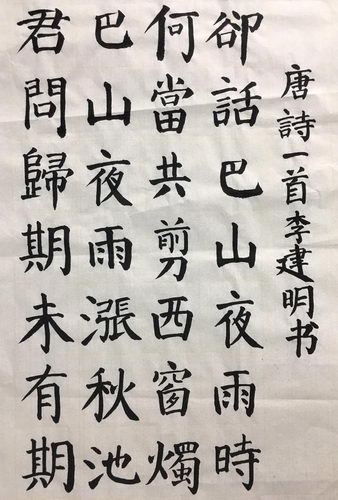 君問歸期未有期
巴山夜雨漲秋池
何當共剪西窗燭
卻話巴山夜雨時
唐詩一首李建明书